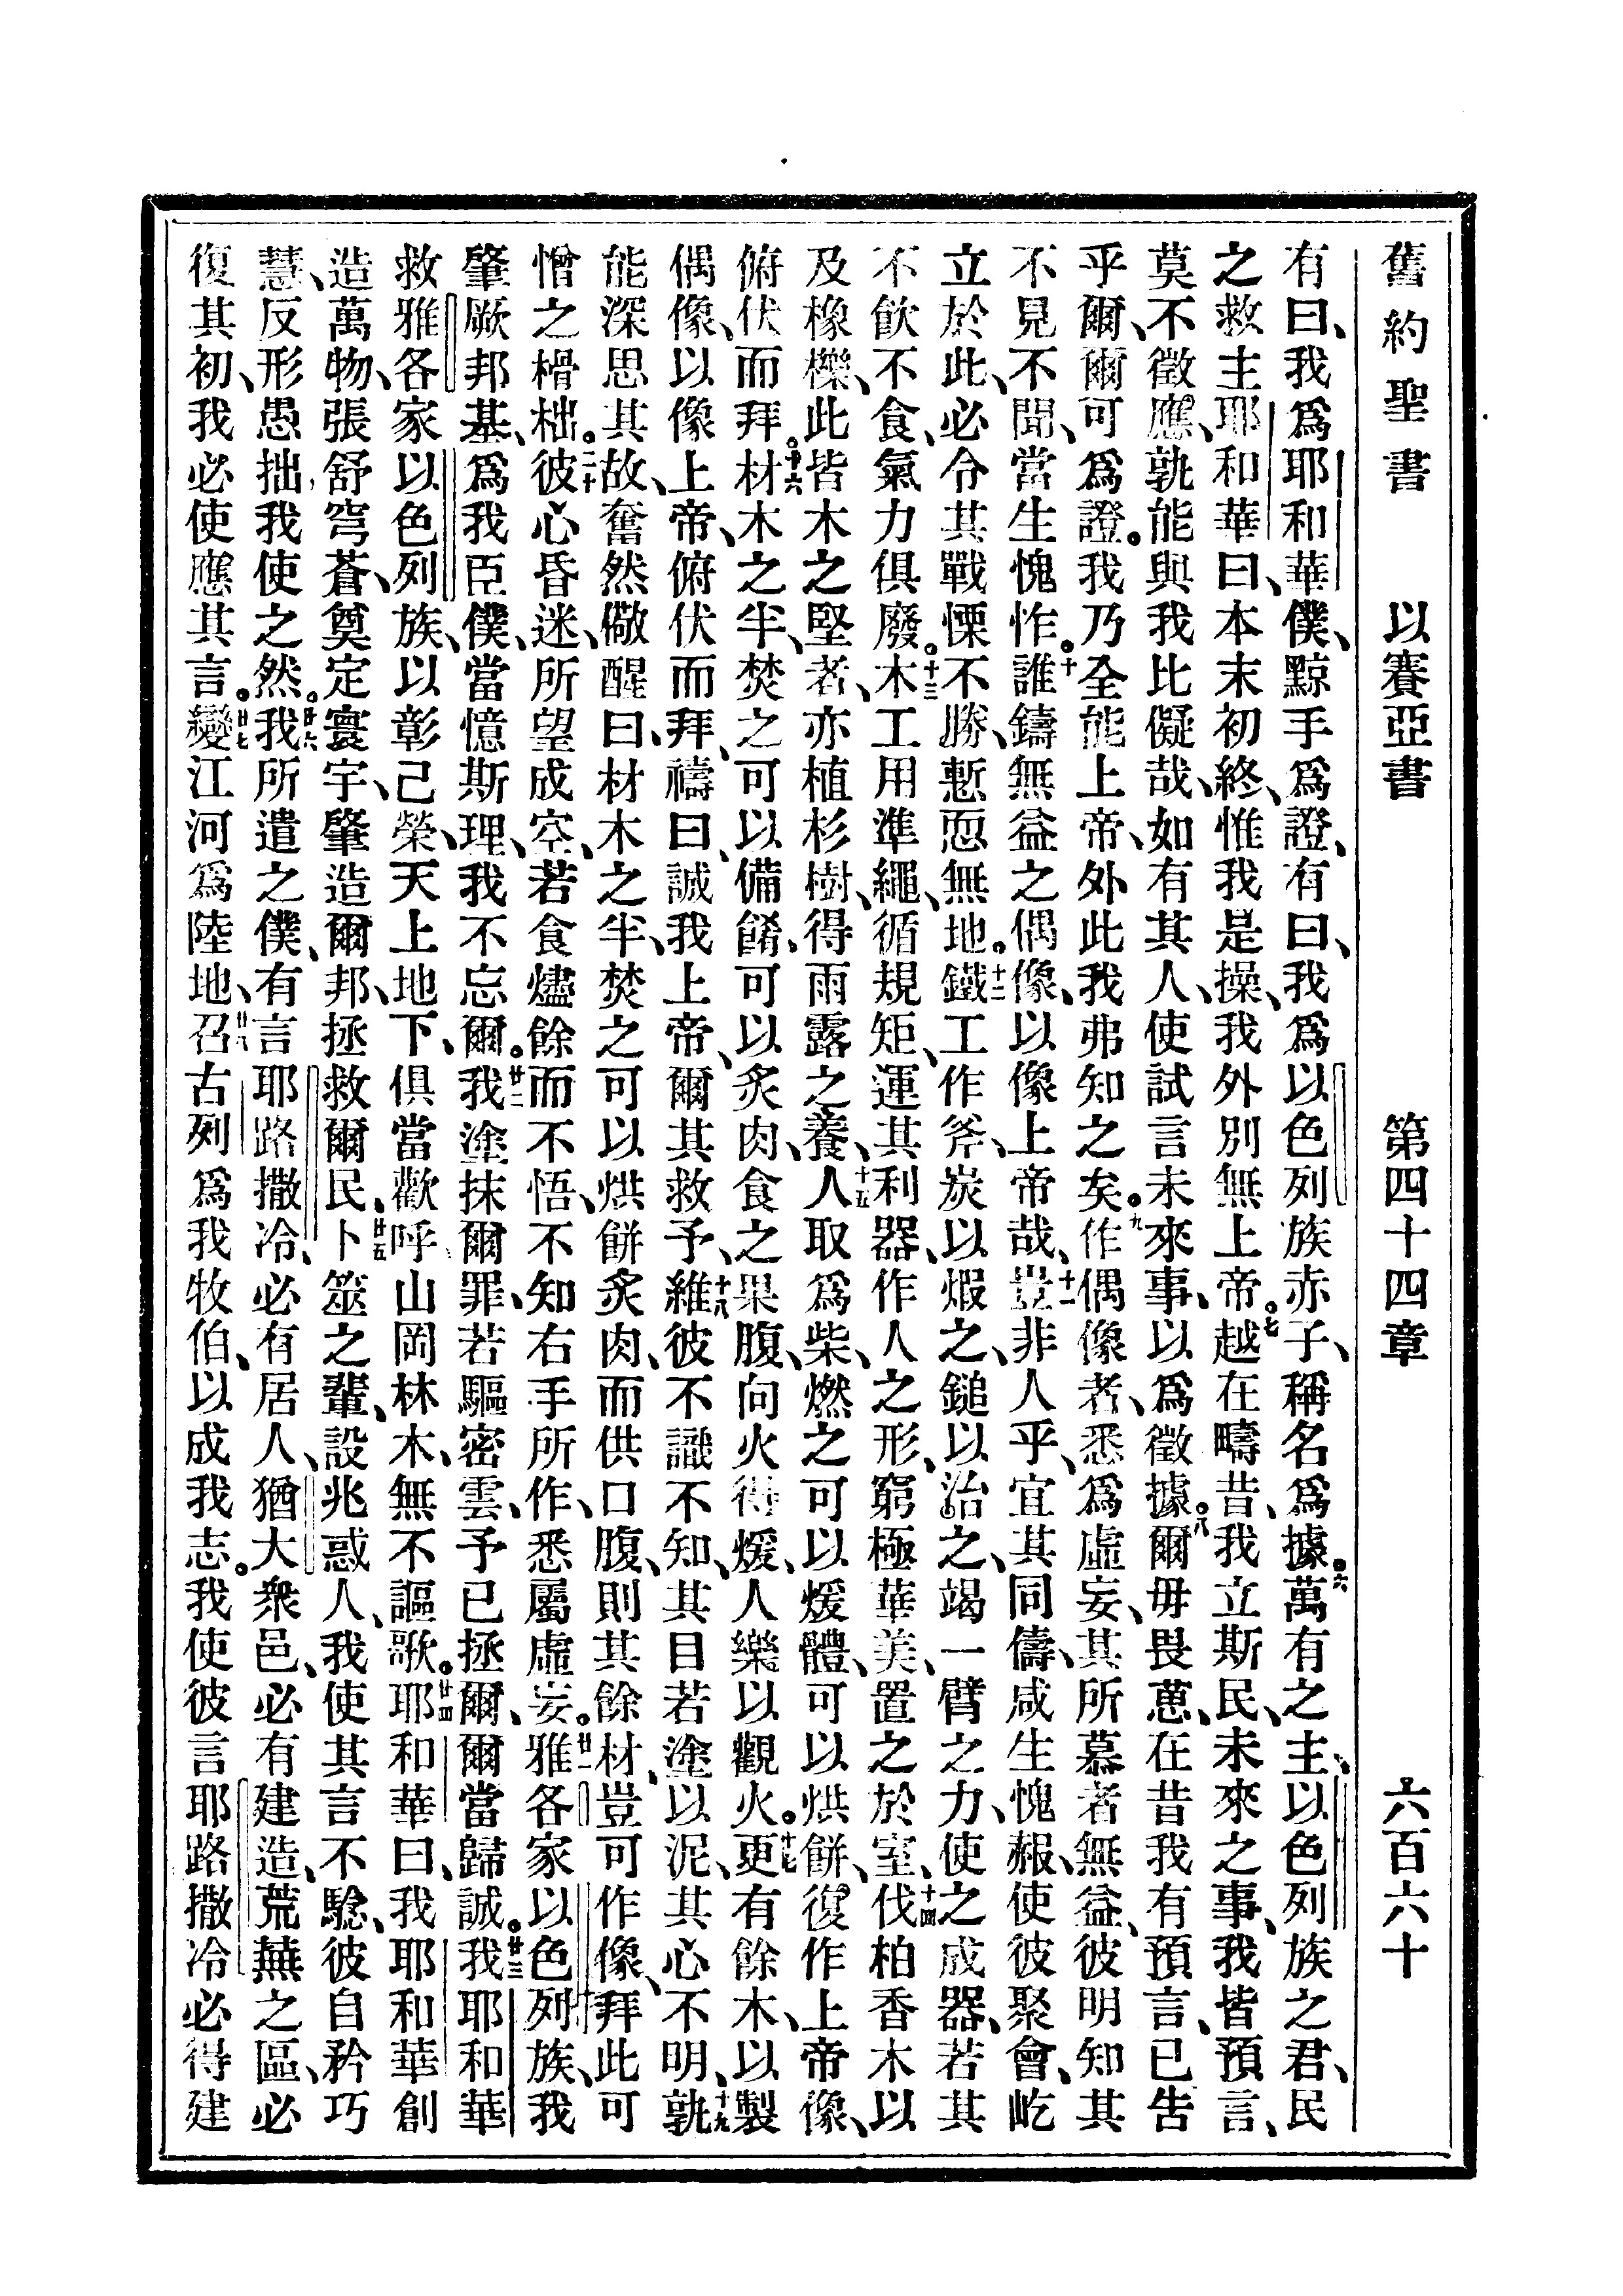 舊約聖書 以賽亞書 第四十四章 六百六十
有曰、我爲耶和華僕、黥手爲證、有曰、我爲以色列族赤子、稱名爲據。六萬有之主、以色列族之君、民
之救主、耶和華曰、本末初終、惟我是操、我外別無上帝。七越在疇昔、我立斯民、未來之事、我皆預言、
莫不徵應、孰能與我比儗哉、如有其人、使試言未來事、以爲徵據。八爾毋畏葸、在昔我有預言、已告
乎爾、爾可爲證。我乃全能上帝、外此我弗知之矣。九作偶像者、悉爲虛妄、其所慕者無益、彼明知其
不見不聞、當生愧怍。十誰鑄無益之偶像、以像上帝哉、十一豈非人乎、宜其同儔、咸生愧赧、使彼聚會、屹
立於此、必令其戰慄不勝、慙恧無地。十二鐵工作斧、炭以煅之、鎚以治之、竭一臂之力、使之成器、若其
不飲不食、氣力俱廢。十三木工用準繩、循規矩、運其利器、作人之形、窮極華美、置之於室、十四伐柏香木以
及橡櫟、此皆木之堅者、亦植杉樹、得雨露之養、十五人取爲柴、燃之可以煖體、可以烘餅、復作上帝像、
俯伏而拜。十六材木之半、焚之可以備餚、可以炙肉、食之果腹、向火得煖、人樂以觀火。十七更有餘木、以製
偶像、以像上帝、俯伏而拜、禱曰、誠我上帝、爾其救予、十八維彼不識不知、其目若塗以泥、其心不明、十九孰
能深思其故、奮然儆醒曰、材木之半、焚之可以烘餅炙肉、而供口腹、則其餘材、豈可作像、拜此可
憎之榾柮。二十彼心昏迷、所望成空、若食燼餘而不悟、不知右手所作、悉屬虛妄。廿一雅各家以色列族、我
肇厥邦基、爲我臣僕、當憶斯理、我不忘爾。廿二我塗抹爾罪、若驅密雲、予已拯爾、爾當歸誠。廿三我耶和華
救雅各家以色列族、以彰己榮、天上地下、俱當歡呼、山岡林木、無不謳歌。廿四耶和華曰、我耶和華創
造萬物、張舒穹蒼、奠定寰宇、肇造爾邦、拯救爾民、廿五卜筮之輩、設兆惑人、我使其言不驗、彼自矜巧
慧、反形愚拙、我使之然。廿六我所遣之僕、有言耶路撒冷、必有居人、猶大衆邑、必有建造、荒蕪之區、必
復其初、我必使應其言。廿七變江河爲陸地、廿八召古列爲我牧伯、以成我志。我使彼言耶路撒冷必得建